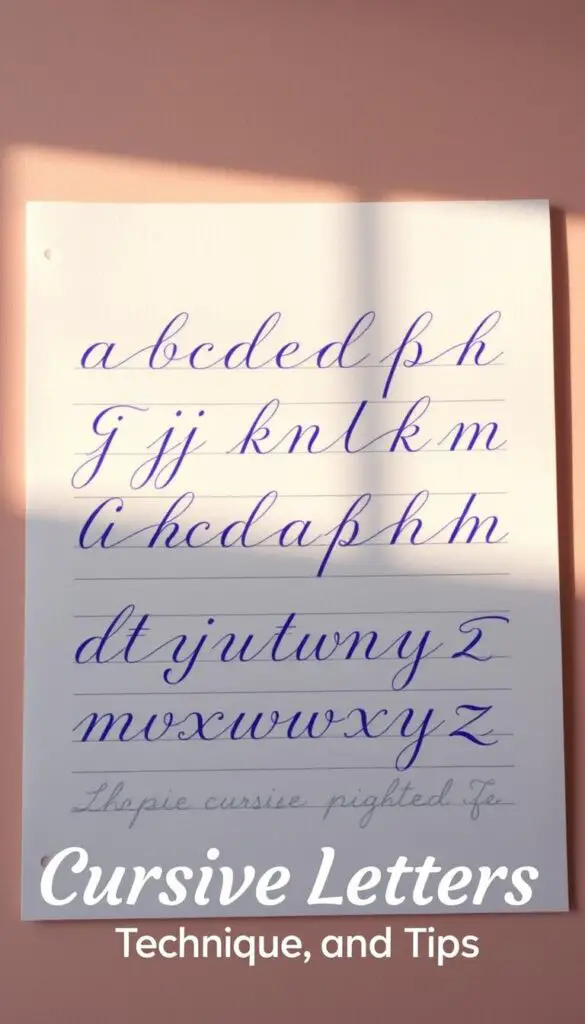 abcded ph
G jj knlkm
a hcdaphm
dtyjutwny I
moxwwxyz
Lhepie cursiee pighted Fe
Cursive Letters
Technique, and Tips